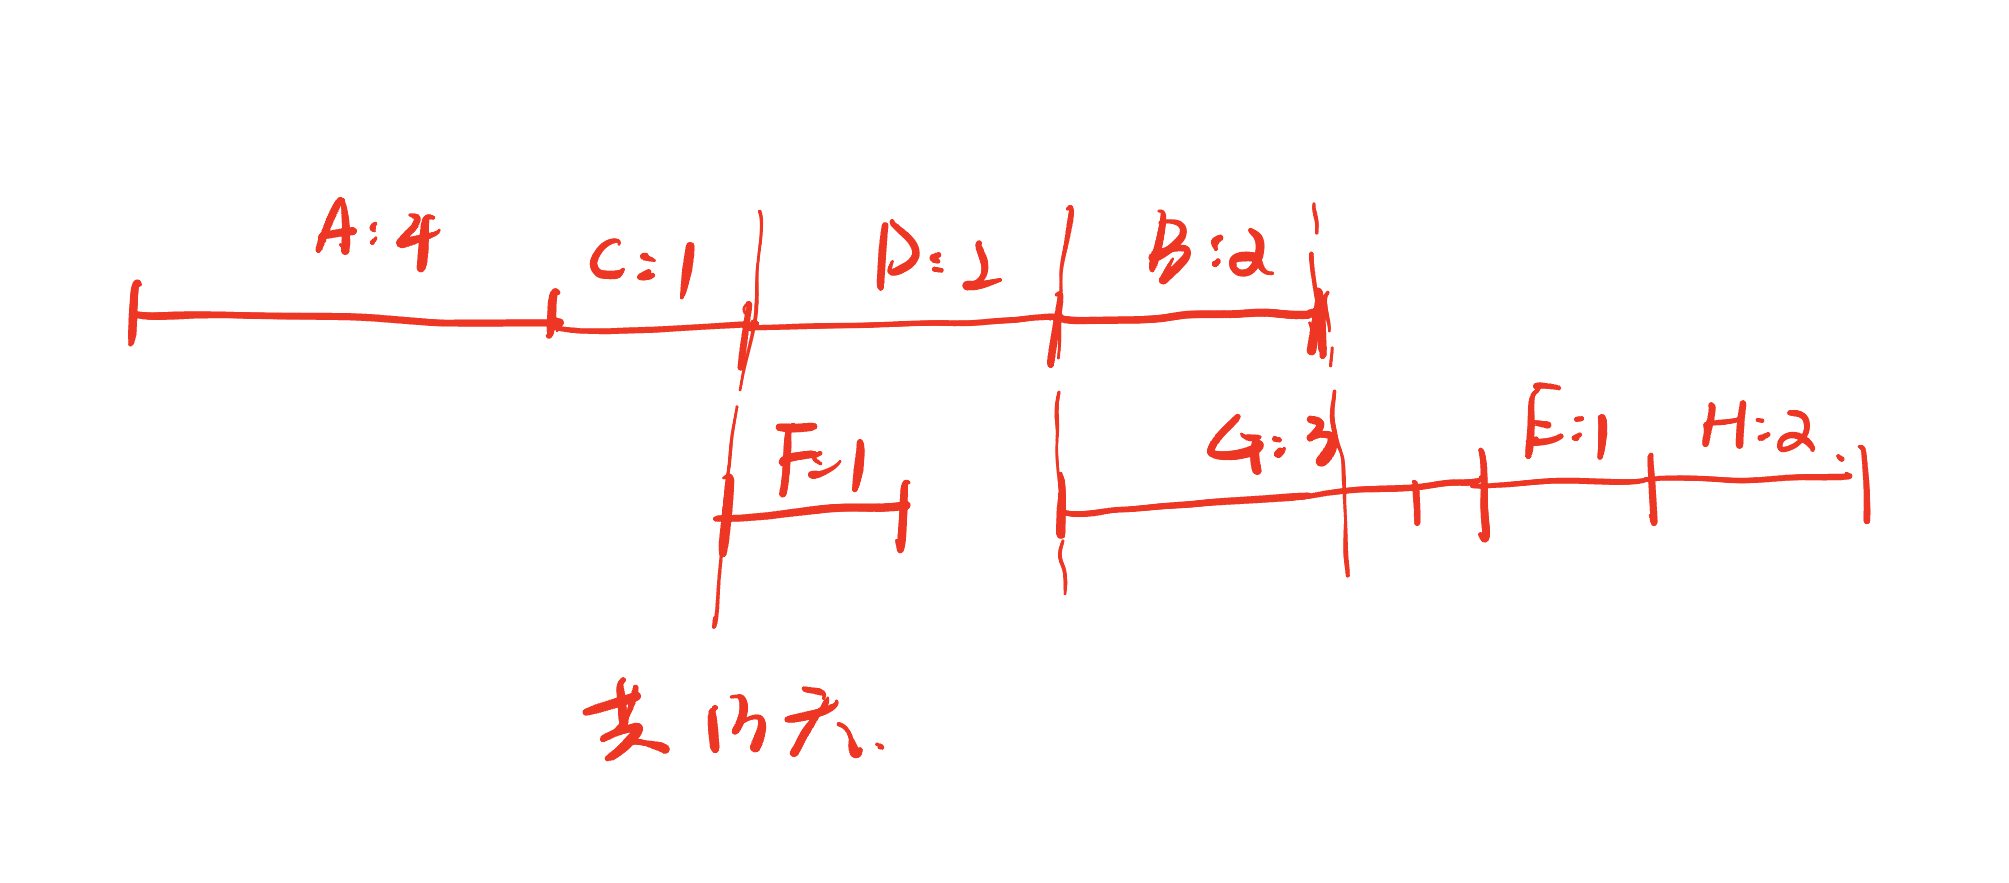 A:4 C:1 D:2 B:2
F:1 G:3 E:1 H:2.
共13天.